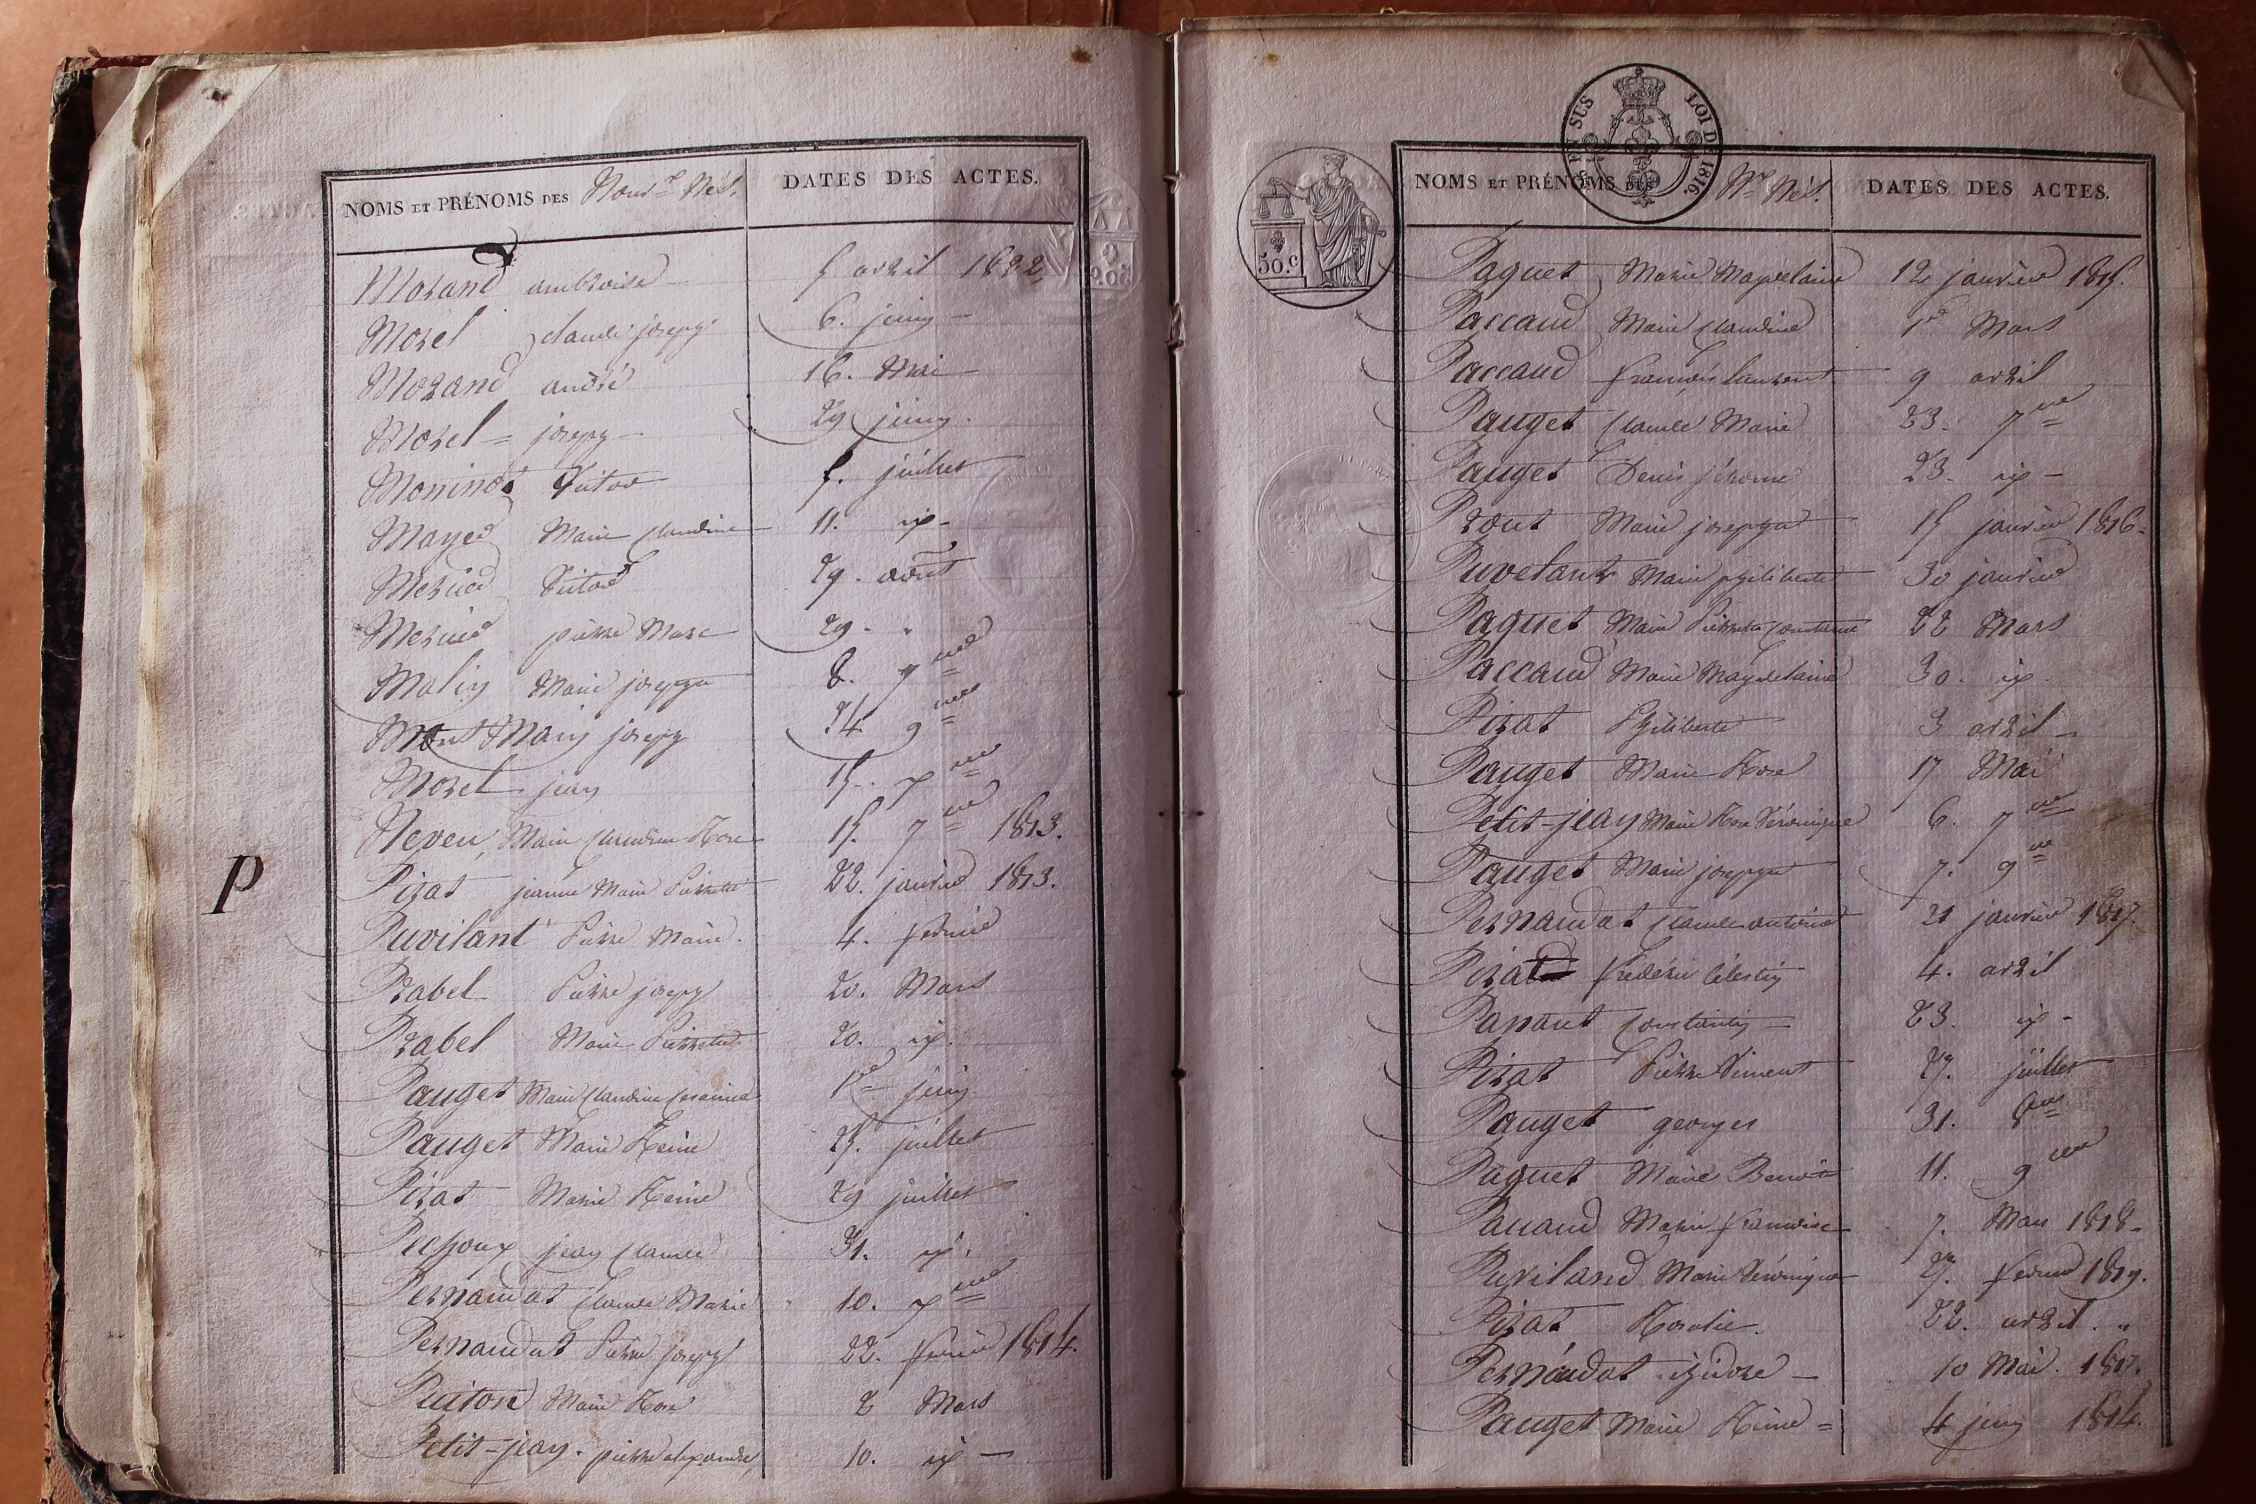 NOMS ET PRÉNOMS DES Nouv. Nés. DATES DES ACTES.
Morand ambroise 5 avril 1822
Morel claude joseph 6. juin
Morand andré 16. Mai
Morel joseph 29 juin.
Moninot Victor 5. juillet
Mayer Marie claudine 11. ix
Mercier Victor 29. aout
Mercier pierre Marc 29. "
Malin Marie josepha 8. 7bre
Mont Marin joseph 9bre
Morel jean 15. Xbre
Neveu, Marie claudine Rose 15. 7bre 1813.
P
Pirat jeanne Marie Pierrette 22. janvier 1813.
Puvilant Pierre Marie. 4. fevrier
Prabel Pierre joseph 20. Mars
Prabel Marie Pierrette 20. ix.
Pauget Marie claudine 1er juin
Pauget Marie Reine 25. juillet
Pirat Marie Reine 29 juillet
jean claude 31. ix.
Pernaudat claude Marie 10. Xbre
Pernaudat Pierre joseph 22. fevrier 1814.
Puiton Marie Rose 2 Mars
Petit-jean. pierre alexandre 10. ix
50.c
LOI DE 1816.
NOMS ET PRÉNOMS DES Nx Nés. DATES DES ACTES.
Paquet Marie Magdelaine 12 janvier 1815.
Paccaud Marie claudine 1er Mars
Paccaud francois laurent 9 avril
Pauget claude Marie 23. 7bre
Pauget Denis jérome 23. ix
Prout Marie josepha 15 janvier 1816.
Puvelant Marie philiberte 30 janvier
Paquet Marie Pierrette constance 22 Mars
Paccaud Marie Magdelaine 30. ix
Pirat Philiberte 3 avril
Pauget Marie Rose 17 Mai
Petit-jean Marie Rose Véronique 6. 7bre
Pauget Marie josepha 7. 9bre
Pernaudat claude antoine 21 janvier 1817
Pirat frédéric Célestin 4. avril
Panaut Constantin 23. ix
Pirat Pierre Vincent 27. juillet
Pauget georges 31. 8bre
Paquet Marie Benoite 11. 9bre
Paccaud Marie francoise 7. Mars 1818
Puviland Marie Véronique 27. fevrier 1819.
Pirat Rosalie. 22. avril. "
Pernaudat izidore 10 Mai. 1817.
Pauget Marie Reine 4 juin 1814.